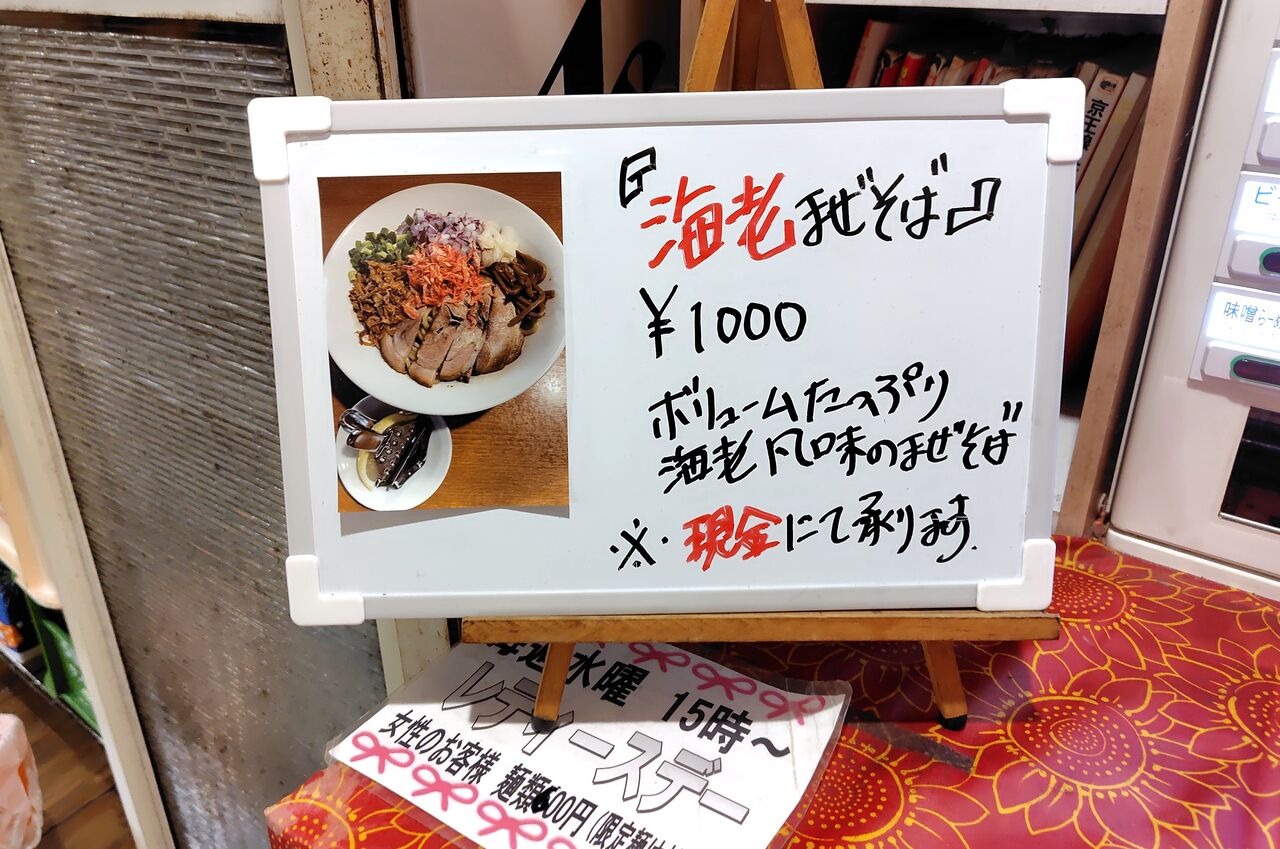 『海老まぜそば』
¥1000
ボリュームたっぷり
海老風味のまぜそば
※現金にて承ります。
毎週水曜 15時〜
レディースデー
女性のお客様 麺類600円(限定麺は
京王線
味噌らーめ